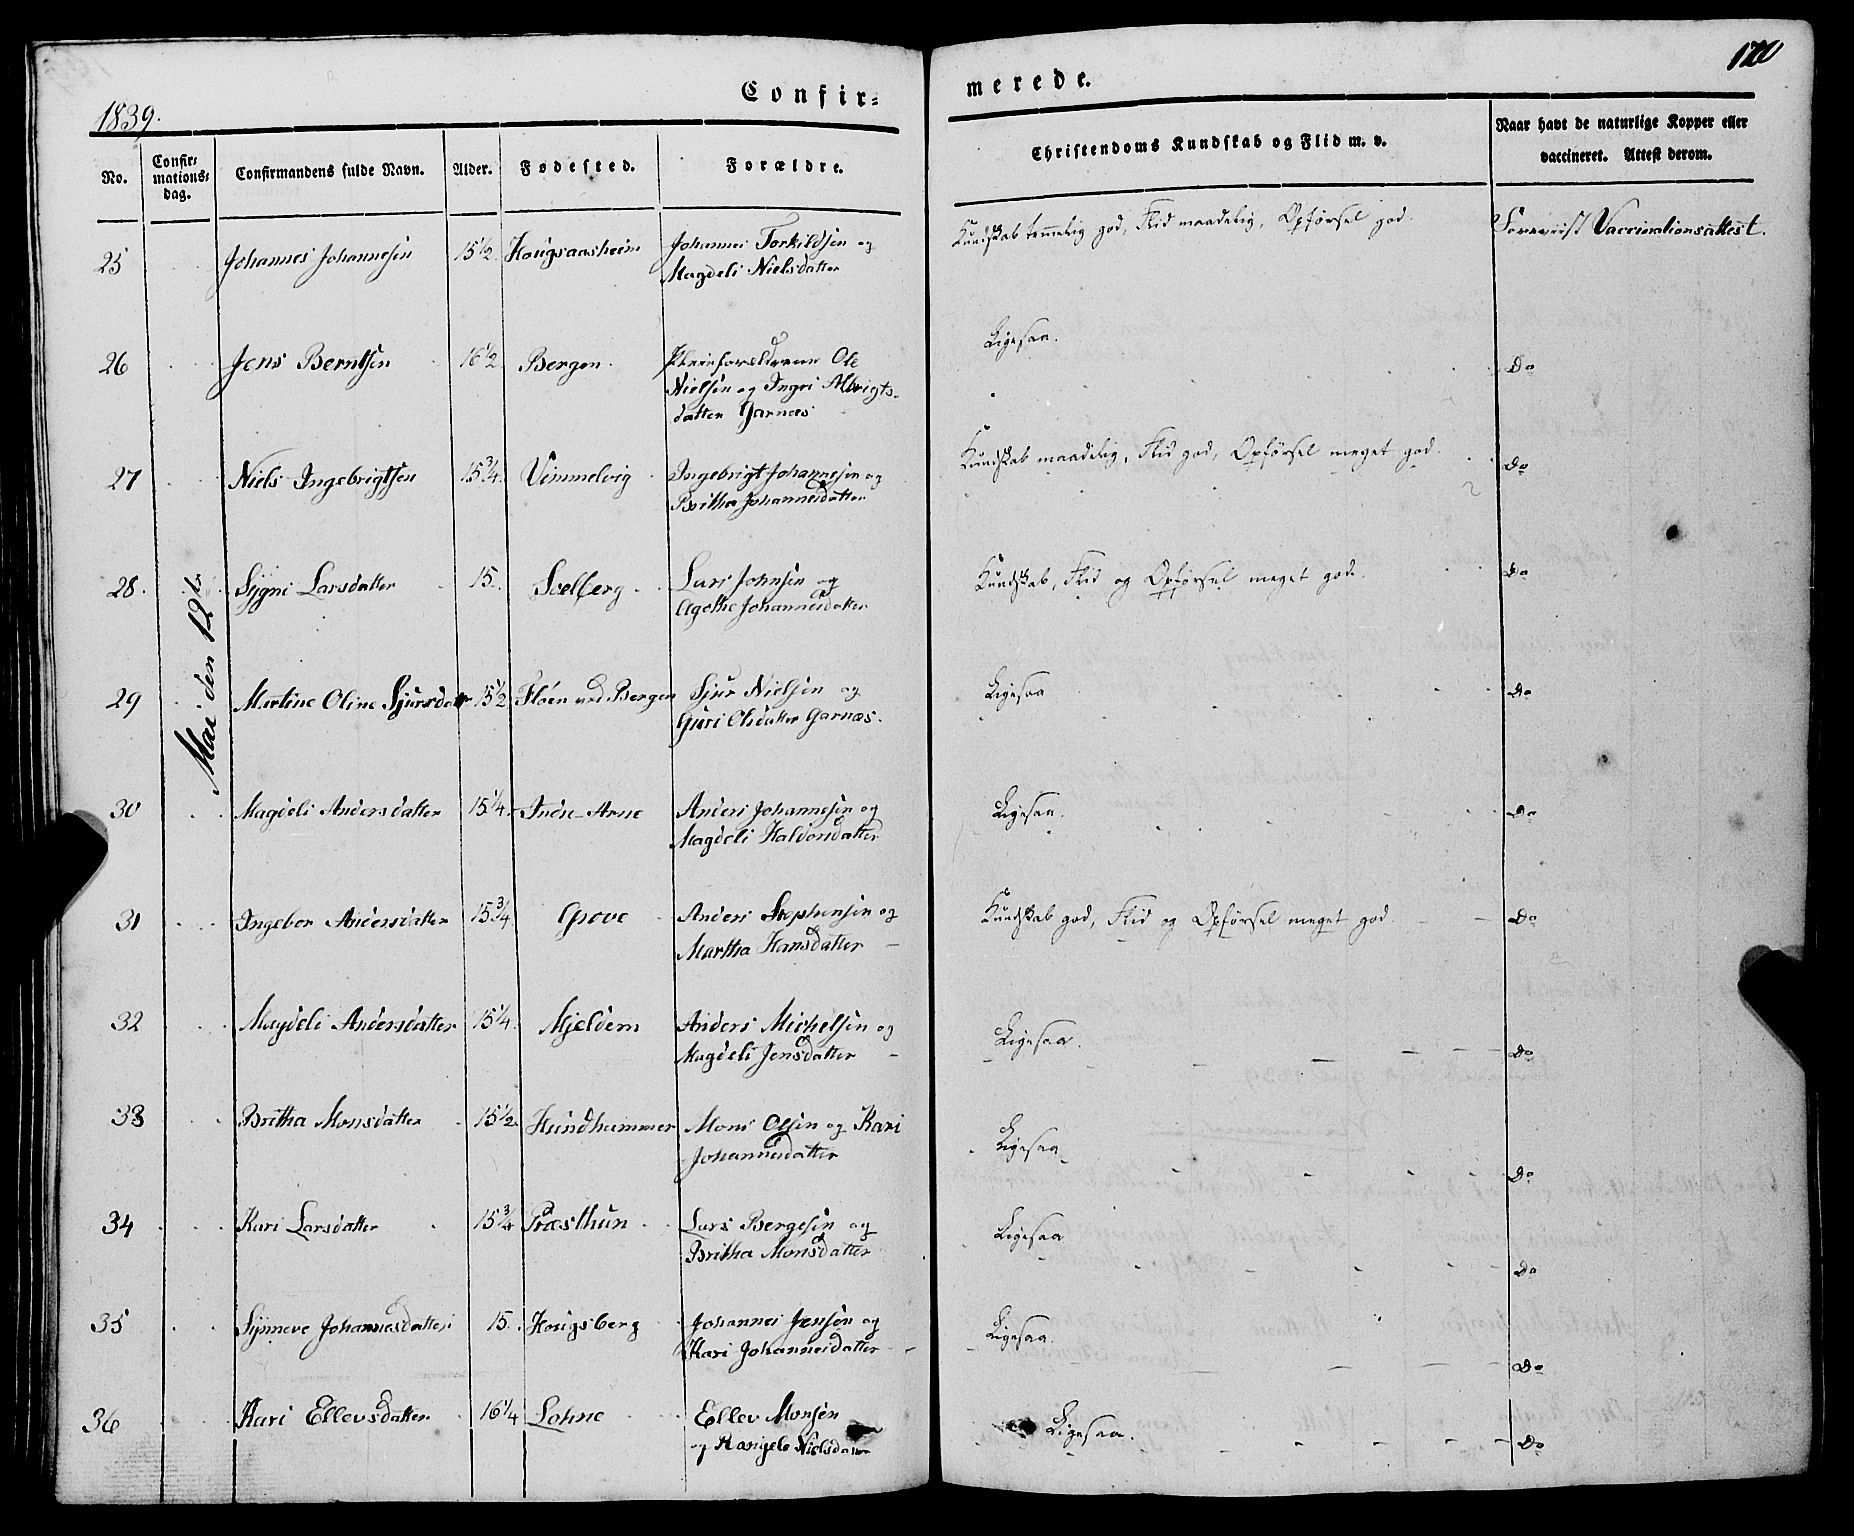 1839.
Confir-
merede.
No.
Confir-
mations-
dag.
Confirmandens fulde Navn.
Alder.
Fødested.
Forældre.
Christendoms Kundskab og Flid m. v.
Naar havt de naturlige Kopper eller
vaccineret. Attest derom.
Mai den 12te
25 Johannes Johannesen 15 1/2 Hougsaasheim Johannes Torkildsen og
Magdeli Nielsdatter
Kundskab temmelig god, Flid maadelig, Opførsel god. Foreviist Vaccinationsattest.
26 Jens Berntsen 16 1/2 Bergen. Pleieforældrene Ole
Nielsen og Ingri Albrigts-
datter Garnæs
Ligesaa. Do
27 Niels Ingebrigtsen 15 3/4 Vimmelvig Ingebrigt Johannesen og
Britha Johannesdatter
Kundskab maadelig, Flid god, Opførsel meget god. Do
28. Sygni Larsdatter 15. Soelberg Lars Johnsen og
Agathe Johannesdatter
Kundskab, Flid og Opførsel meget god. Do
29 Martine Oline Sjursdatter 15 1/2 Fløen ved Bergen Sjur Nielsen og
Guri Olsdatter Garnæs.
Ligesaa Do
30 Magdeli Andersdatter 15 1/4 Indre-Arne Anders Johannesen og
Magdeli Haldorsdatter
Ligesaa. Do
31 Ingebor Andersdatter 15 3/4 Grove Anders Stephensen og
Martha Hansdatter
Kundskab god, Flid og Opførsel meget god. Do
32 Magdeli Andersdatter 15 1/4 Mjeldem Anders Michelsen og
Magdeli Jensdatter
Ligesaa. Do
33 Britha Monsdatter 15 1/2 Hundhammer Mons Olsen og Kari
Johannesdatter
Ligesaa Do
34 Kari Larsdatter 15 3/4 Præsthun Lars Bergesen og
Britha Monsdatter
Ligesaa Do
35 Synneve Johannesdatter 15. Hougsberg Johannes Jensen og
Kari Johannesdatter
Ligesaa. Do
36 Kari Ellevsdatter 16 1/4 Lohne Ellev Monsen
og Rangele Nielsdatter
Ligesaa. Do